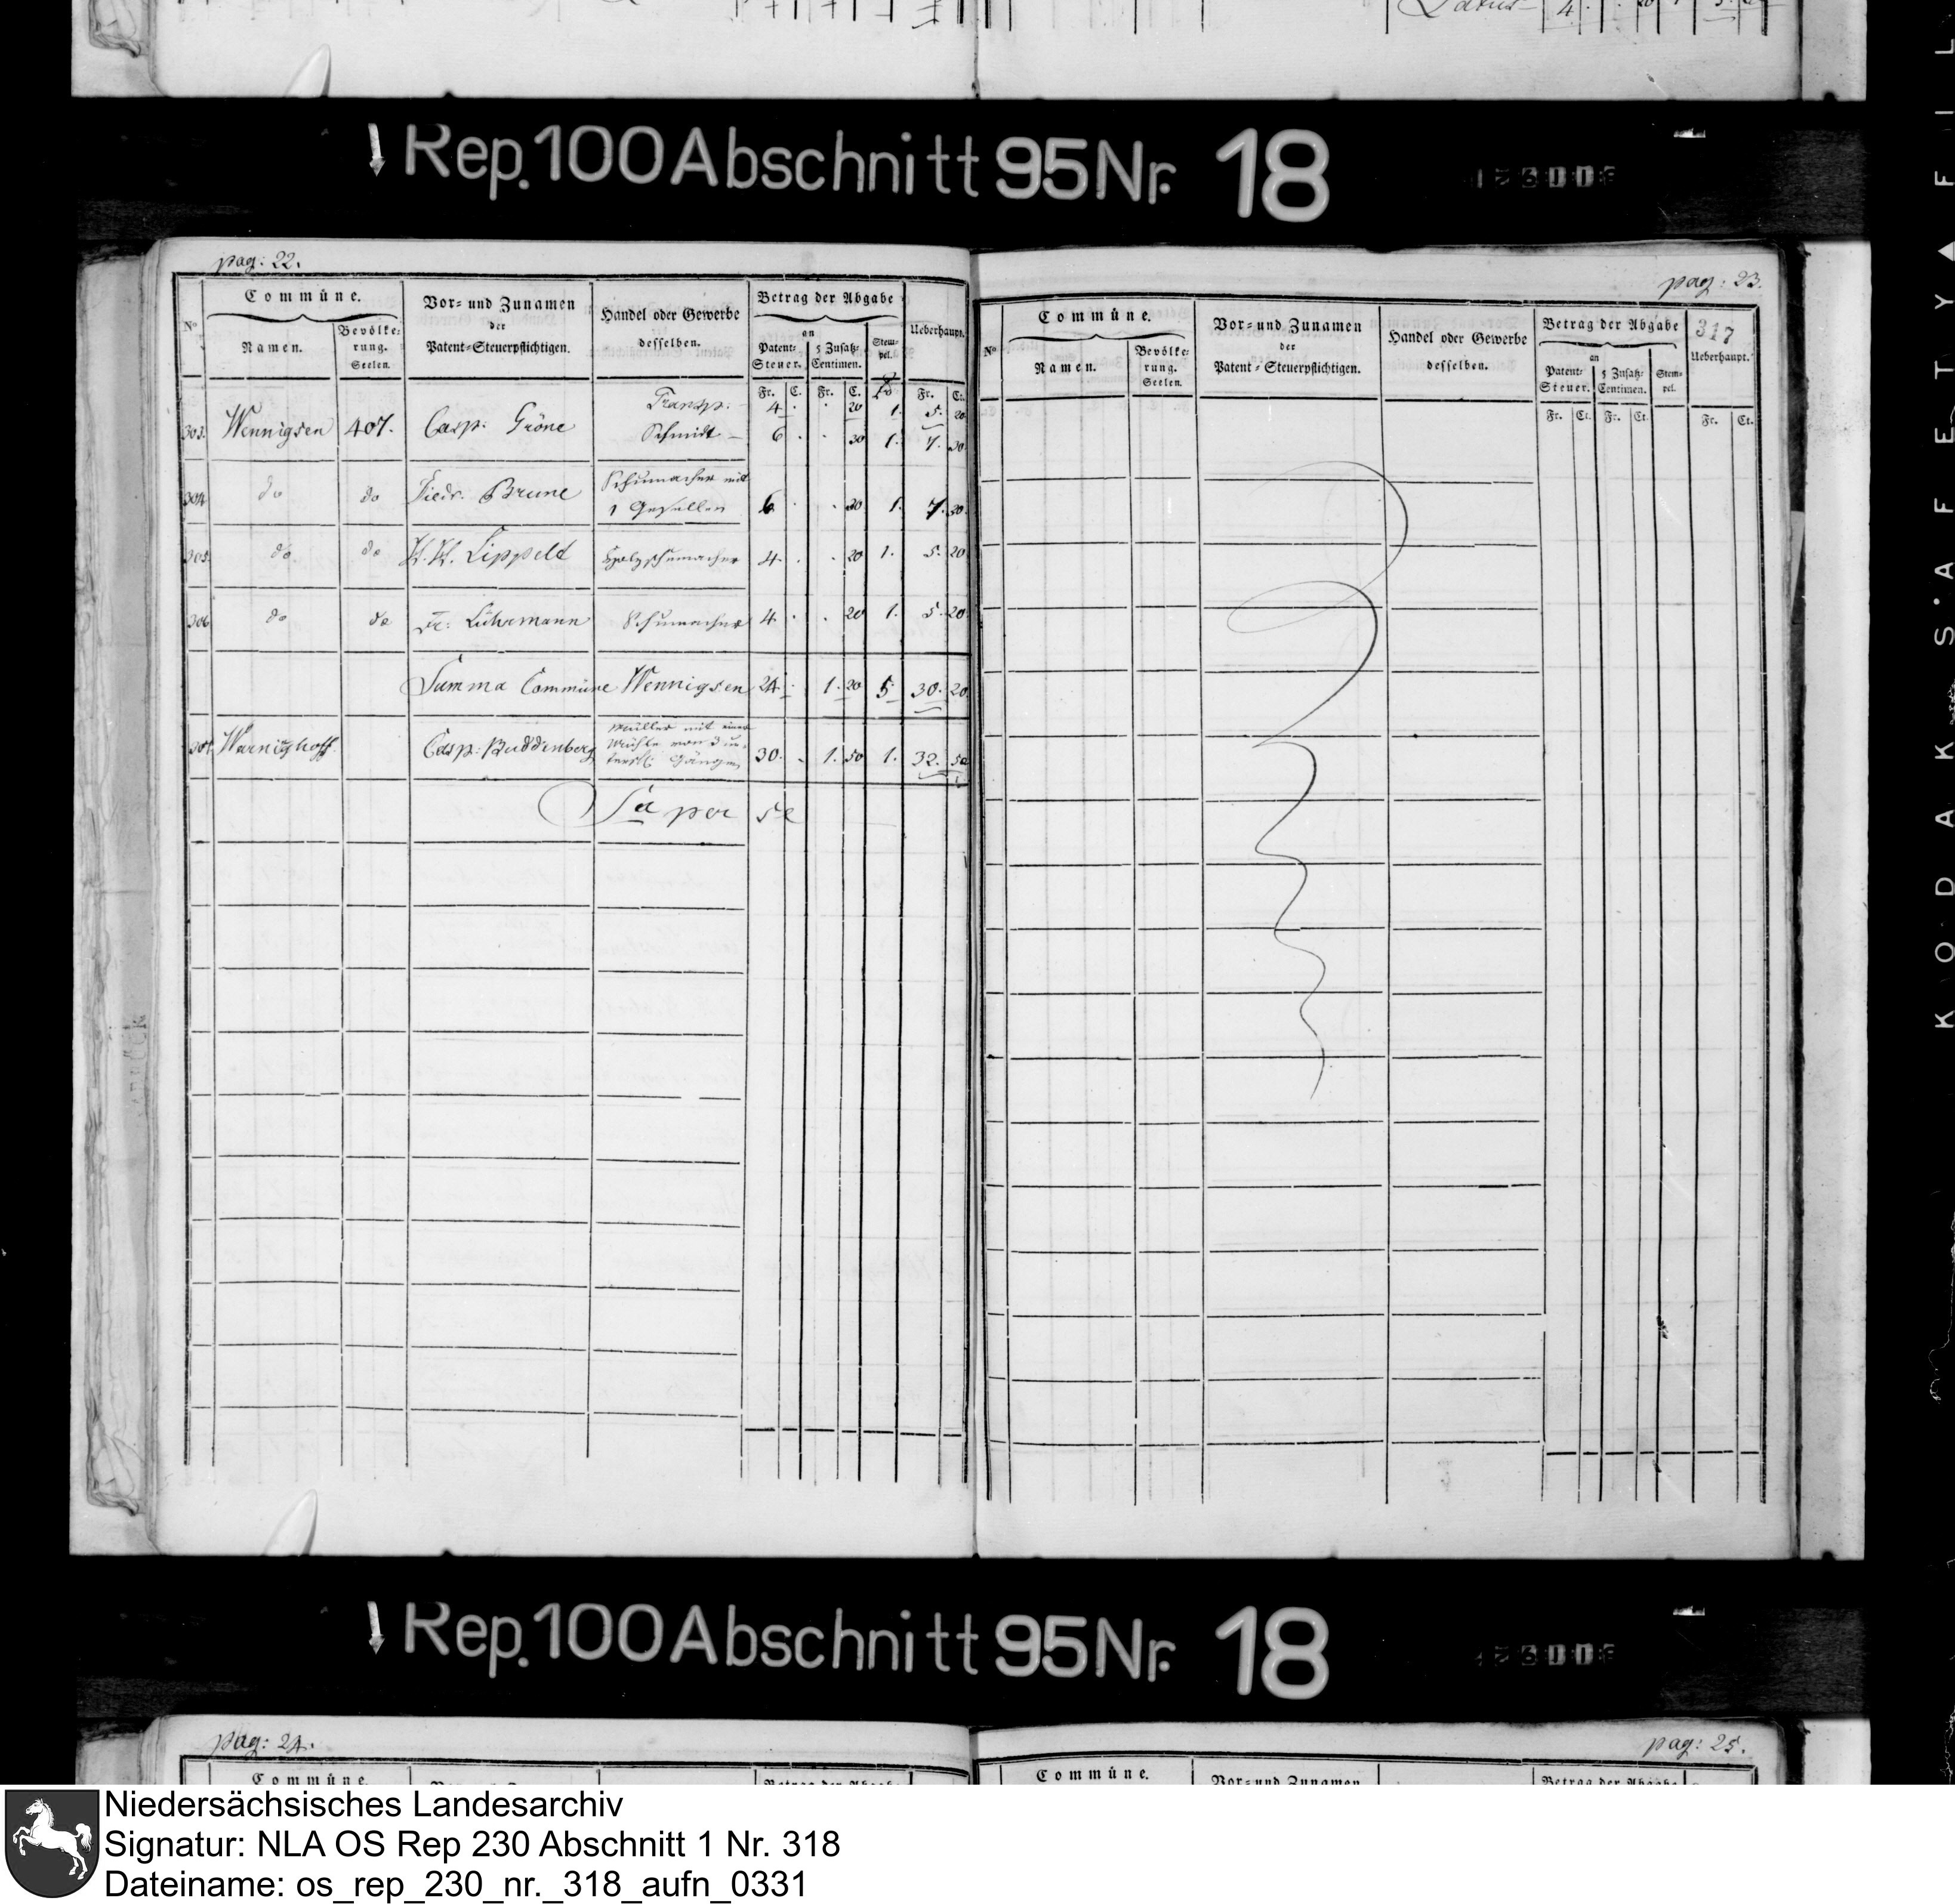 Latus 4 . . 20 1 5. 20
Rep. 100 Abschnitt 95 Nr. 18
pag: 22.
No
Commüne.
Namen.
Bevölke-
rung.
Seelen.
Vor- und Zunamen
der
Patent-Steuerpflichtigen.
Handel oder Gewerbe
desselben.
Betrag der Abgabe
an
Patent-
Steuer.
5 Zusatz-
Centimen.
Stem-
pel.
Ueberhaupt.
Fr. C. Fr. C. Fr. C.
Transp: 4. . . 20 1. 5. 20
303. Wennigsen 407. Casp: Gröne Schmidt – 6 . . 30 1. 7. 30
304 do do Diedr. Brune Schumacher mit
1 Gesellen 6 . . 30 1. 7. 30.
305. do. do H. H. Lippelt Holzschumacher 4. . . 20 1. 5. 20
306 do do Fr: Lührmann Schumacher 4. . . 20 1. 5. 20.
Summa Commüne Wennigsen 24. . 1. 20 5 30. 20.
307. Warnighoff Casp: Buddenberg Müller mit einer
Mühle von 3 un-
terschl: Gängen 30. . 1. 50 1. 32. 50
Sa per se
pag: 23.
317
No
Commüne.
Namen.
Bevölke-
rung.
Seelen.
Vor- und Zunamen
der
Patent-Steuerpflichtigen.
Handel oder Gewerbe
desselben.
Betrag der Abgabe
an
Patent-
Steuer.
5 Zusatz-
Centimen.
Stem-
pel.
Ueberhaupt.
Fr. Ct. Fr. Ct. Fr. Ct.
KODAK SAFETY FIL
Rep. 100 Abschnitt 95 Nr. 18
pag: 24.
Commüne.
Betrag der Abgabe
pag: 25.
Commüne.
Vor- und Zunamen
Betrag der Abgabe
Niedersächsisches Landesarchiv
Signatur: NLA OS Rep 230 Abschnitt 1 Nr. 318
Dateiname: os_rep_230_nr._318_aufn_0331